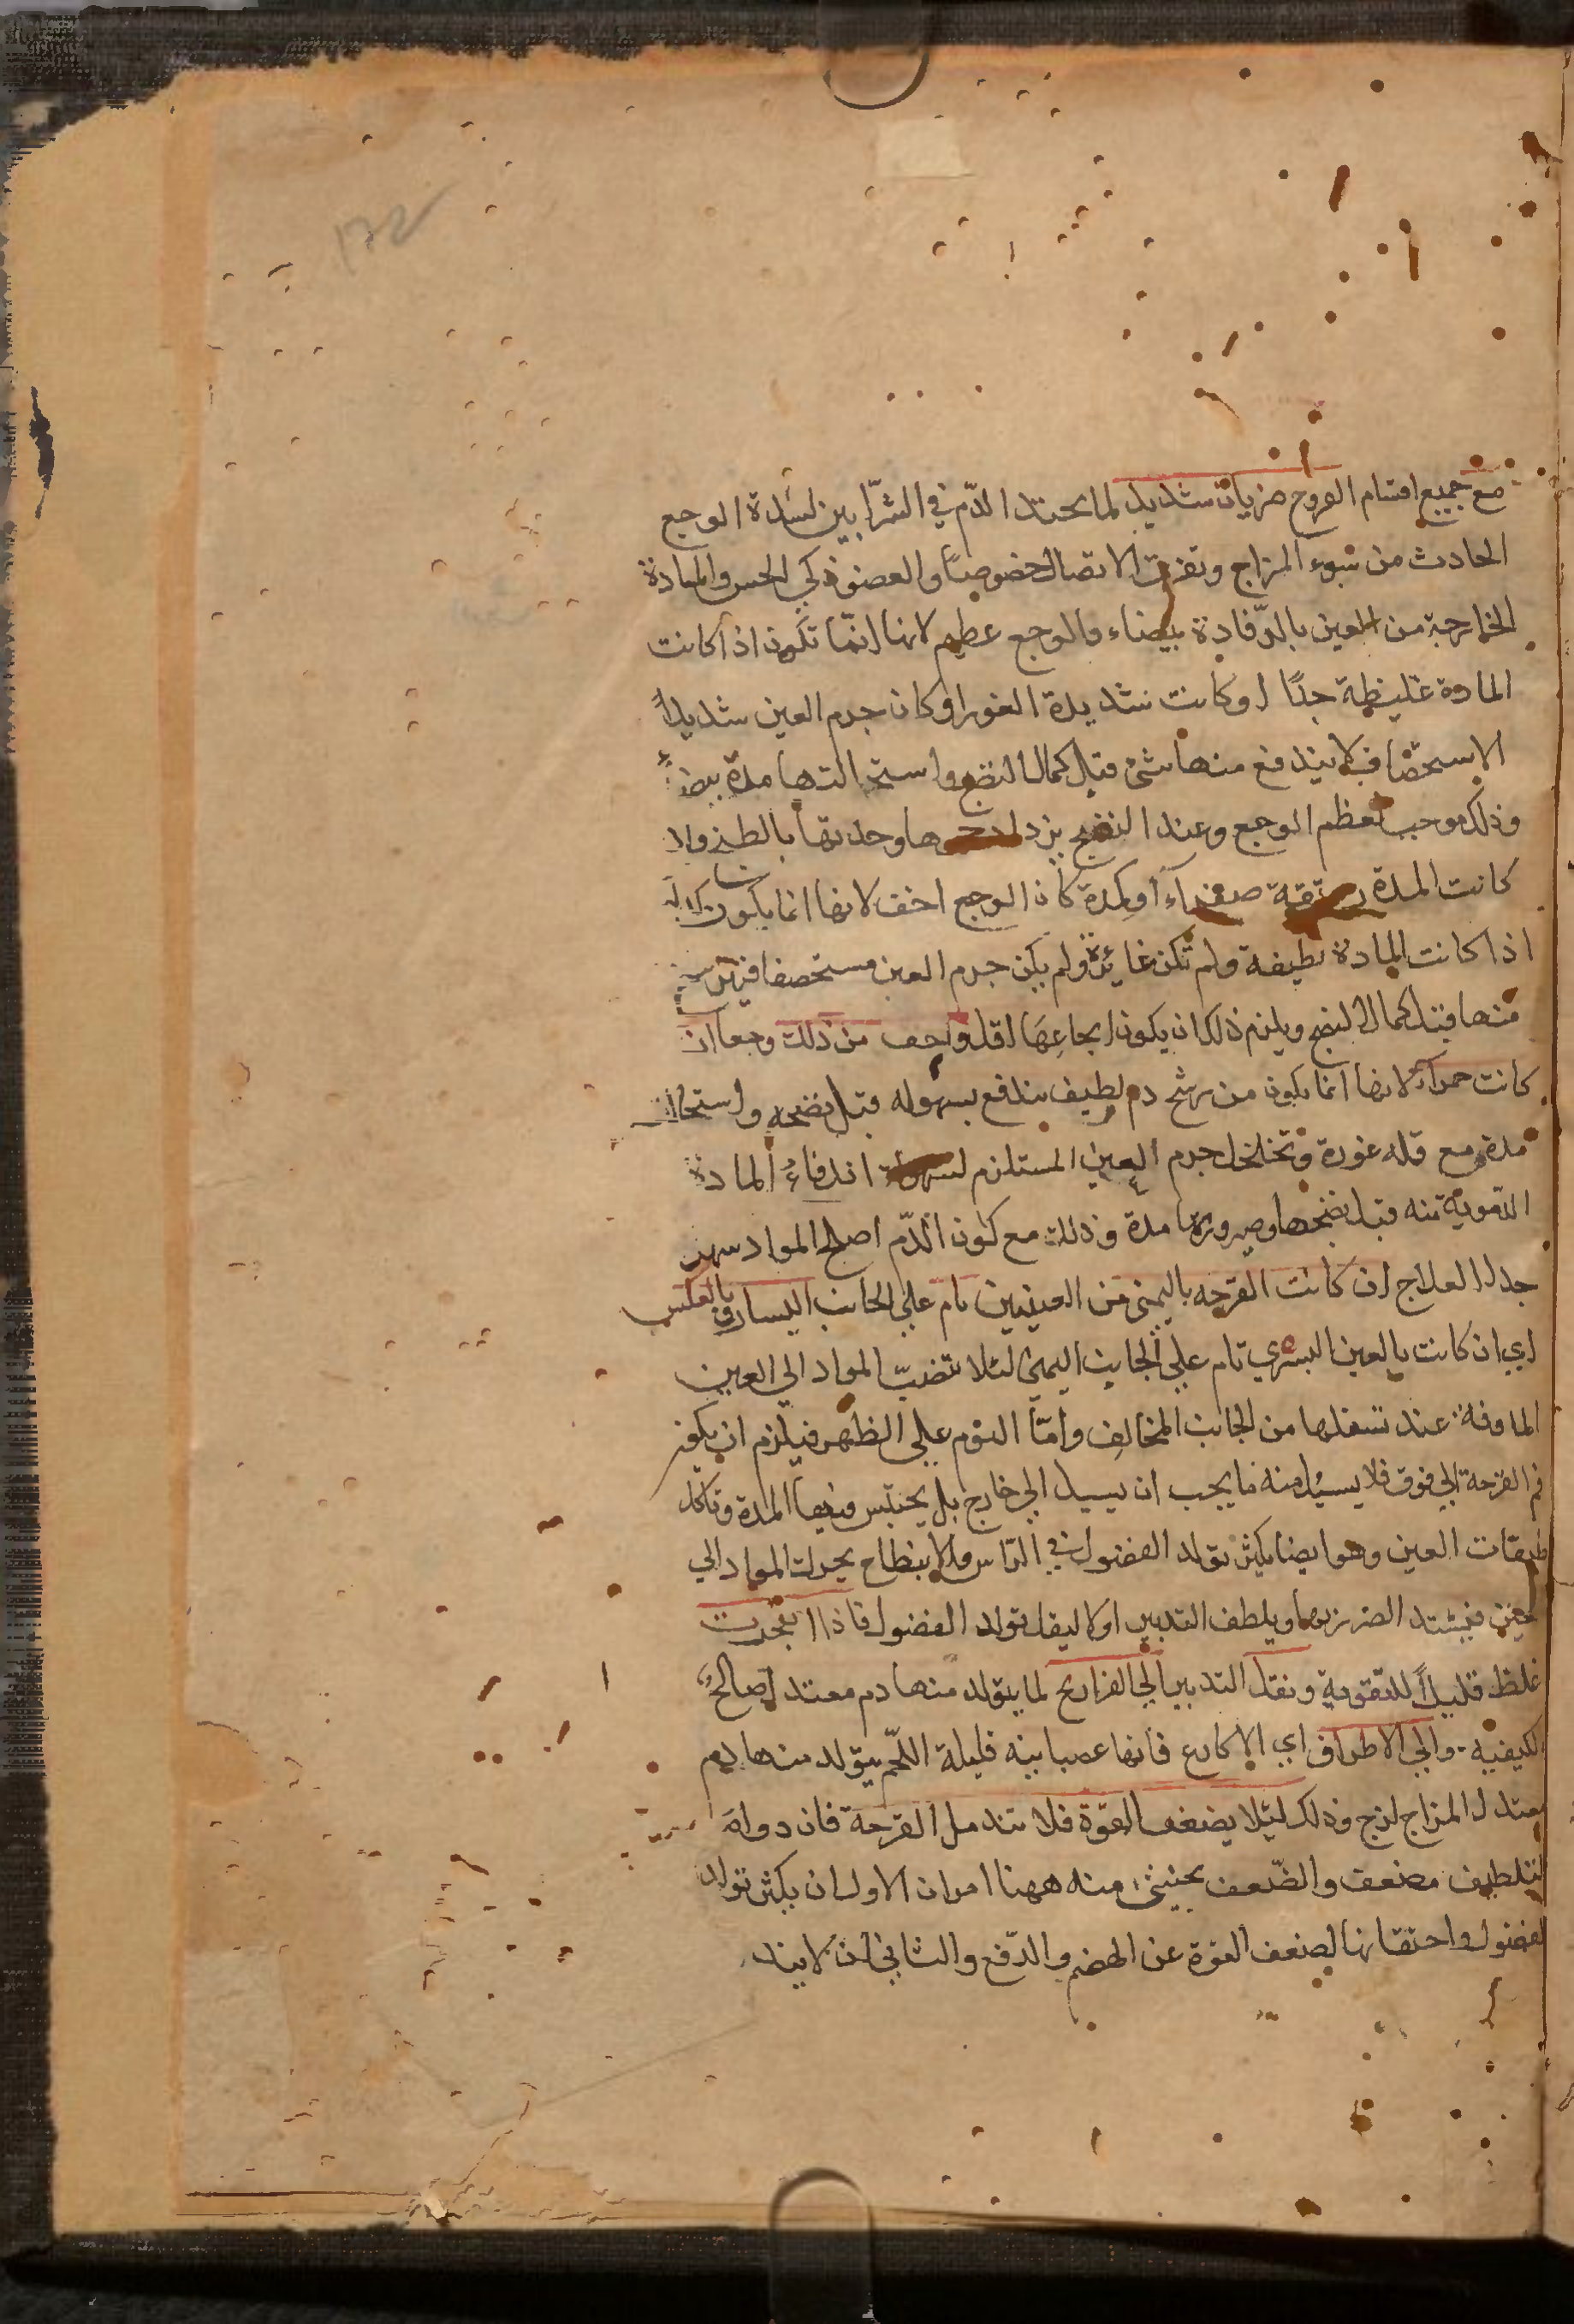 مع جميع اقسام القروح ضربان شديد لما يحتد الدّم في الشّرايين لشدة الوجع
الحادث من سوء المزاج وتفرق الاتصال خصوصًا والعضو ذكي الحس والمادة
الخارجة من العين بالرّفادة بيضاء والوجع عظيم لانها انّما تكون اذا كانت
المادة غليظة جدًا او كانت شديدة الغور او كان جرم العين شديد
الاستحصاف فلا يندفع منها شئ قبل كمال النضج واستحالتها مدة بيضاء
وذلك موجب لعظم الوجع وعند النضج يزداد وحدتها بالطبخ وان
كانت المدة رقيقة صفراء أو كمدة كان الوجع اخف لانها انما يكون كذلك
اذا كانت المادة لطيفة ولم تكن غائرة ولم يكن جرم العين مستحصفا فيترشح
منها قبل كمال النضج ويلزم ذلك ان يكون ايجاعها اقل واخف من ذلك وجعا ان
كانت حمراء لانها انما يكون من ترشح دم لطيف يندفع بسهوله قبل نضجه واستحالته
مدة مع قله غوره وتخلخل جرم العين المستلزم لسهولة اندفاع المادة
الدّموية منه قبل نضجها وصيرورتها مدة وذلك مع كون الدّم اصلح المواد سهل
جدا العلاج ان كانت القرحه باليمنى من العينين نام على الجانب اليسار وبالعكس
اي ان كانت بالعين اليسري نام علي الجانب اليمنى لئلا تنصبّ المواد الي العين
الماوفة عند تسفلها من الجانب المخالف وامّا النوم علي الظهر فيلزم ان يكون
فم القرحة الي فوق فلا يسيل منه ما يجب ان يسيل الي خارج بل يحتبس فيها المدة وتاكل
طبقات العين وهو ايضا يكثر تولد الفضول في الرّاس والانبطاح يحرك المواد الي
العين فيشتد الضرر بها ويلطف التدبير اولا ليقل تولد الفضول فاذا انفجرت
غلظ قليلاً للتقوية ونقل التدبير الي الفراريج لما يتولد منها دم معتدل صالح
الكيفية والي الاطراف اي الاكارع فانها عصبانيه قليلة اللّحم يتولد منها دم
معتدل المزاج لزج وذلك لئلا يضعف القوة فلا تندمل القرحة فان دوام
التلطيف مضعف والضّعف يخشى منه ههنا امران الاول ان يكثر تولد
الفضول واحتقانها لضعف القوة عن الهضم والدّفع والثاني ان لا يند